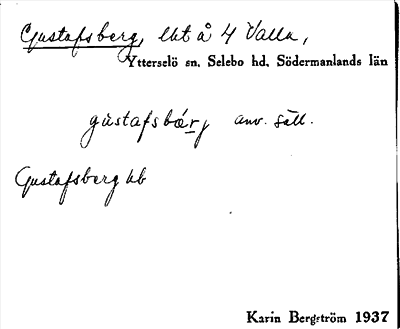 Gustafsberg, lht å 4 Valla,
Ytterselö sn. Selebo hd. Södermanlands län
gustafsbærj anv. säll.
Gustafsberg hb
Karin Bergström 1937